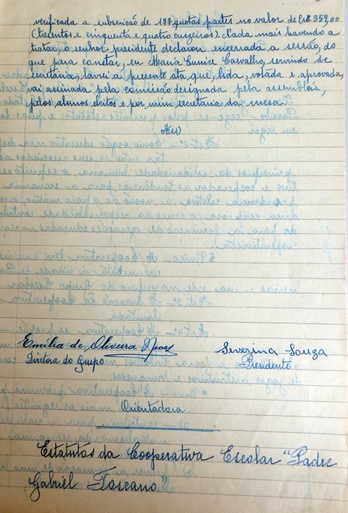 verificada a subscrição de 177 quotas partes no valor de Cr$ 354,00
(trezentos e cinquenta e quatro cruzeiros). Nada mais havendo a
tratar, o senhor presidente declarou encerrada a sessão, do
que para constar, eu Maria Eunice Carvalho, servindo de
secretária, lavrei a presente ata que, lida, votada e aprovada,
vai assinada pela comissão designada pela assembléia,
pelos alunos eleitos e por mim secretária da mesa.
Emília de Oliveira
Severina Souza
Diretora do Grupo
Presidente
Orientadora
Estatutos da Cooperativa Escolar "Padre
Gabriel Toscano"